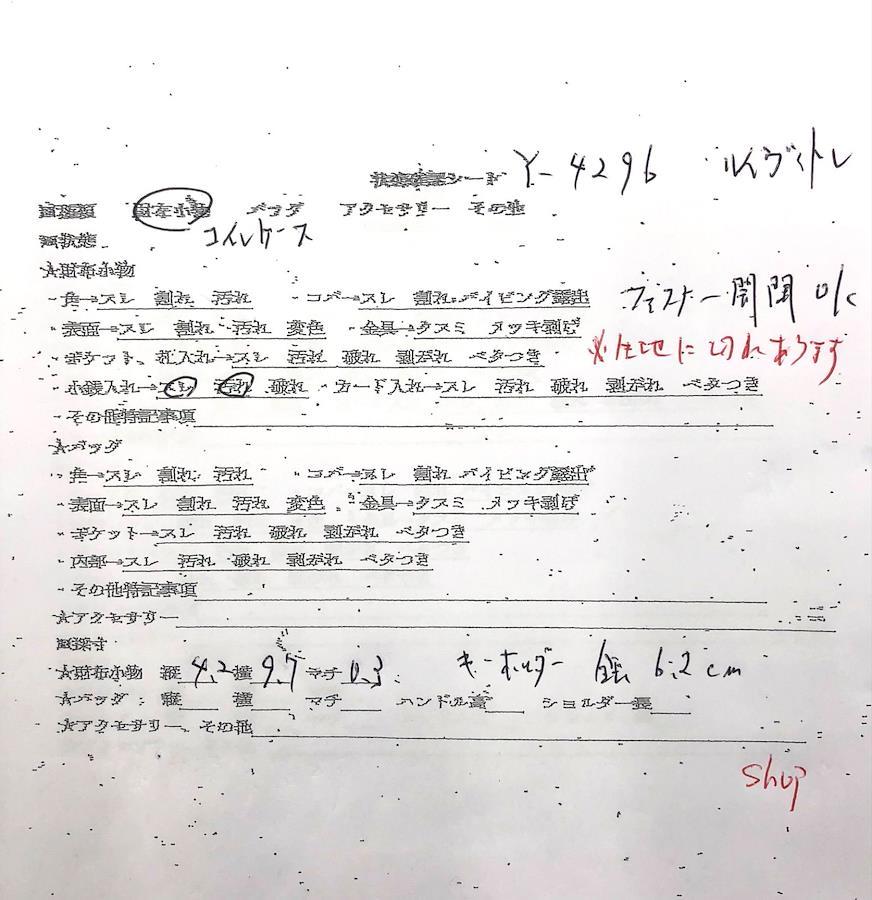 状態確認シート Y-4296 ルイヴィトン
財布小物 バッグ アクセサリー その他
コインケース
☆財布小物
・角→スレ 割れ 汚れ ・コバ→スレ 割れ パイピング露出 ファスナー開閉 OK
・表面→スレ 割れ 汚れ 変色 ・金具→クスミ メッキ剥げ
・ポケット、札入れ→スレ 汚れ 破れ 剥がれ ベタつき ※生地に切れあります
・小銭入れ→スレ 汚れ 破れ ・カード入れ→スレ 汚れ 破れ 剥がれ ベタつき
・その他特記事項
☆バッグ
・角→スレ 割れ 汚れ ・コバ→スレ 割れ パイピング露出
・表面→スレ 割れ 汚れ 変色 ・金具→クスミ メッキ剥げ
・ポケット→スレ 汚れ 破れ 剥がれ ベタつき
・内部→スレ 汚れ 破れ 剥がれ ベタつき
・その他特記事項
☆アクセサリー
採寸
☆財布小物 縦4.2 横9.7 マチ0.3 キーホルダー 全長 6.2cm
☆バッグ：縦 横 マチ ハンドル高 ショルダー長
☆アクセサリー、その他
shop